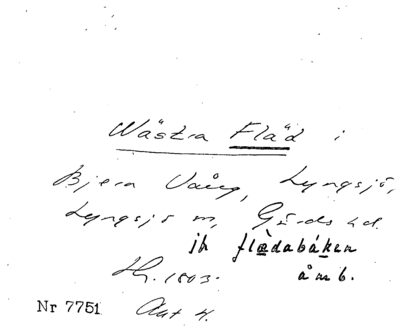 Wästra Fläd i
Bjera Vång, Lyngsjö,
Lyngsjö m, Gärds hd.
jh flädabáken
Hr. 1803. åmb.
Nr 7751 Akt 4.